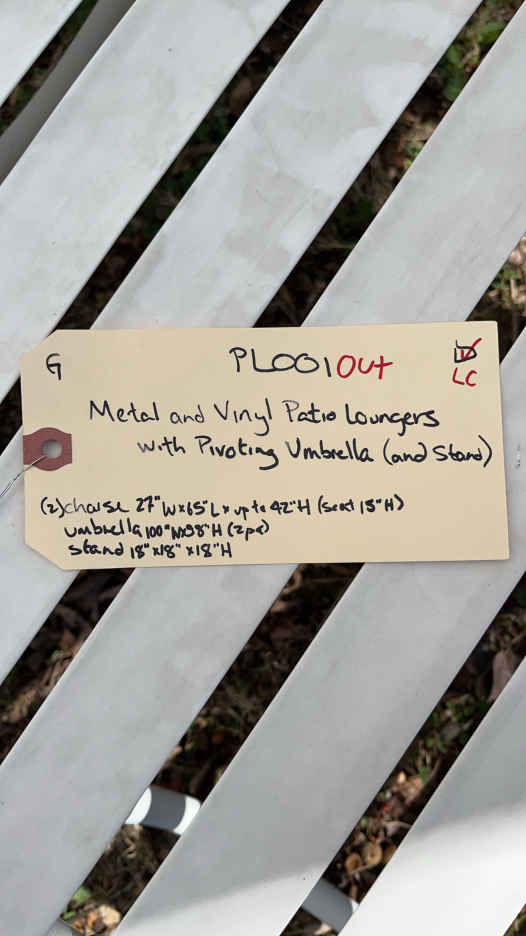 G PL001Out D
LC
Metal and Vinyl Patio Loungers
with Pivoting Umbrella (and Stand)
(2) chaise 27"W x 65"L x up to 42"H (seat 15"H)
umbrella 100"W x 98"H (2pc)
stand 18" x 18" x 18"H